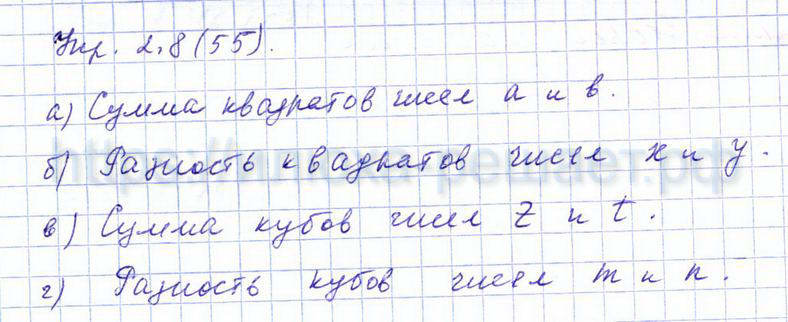 Упр. 2.8(55).
а) Сумма квадратов чисел a и b.
б) Разность квадратов чисел x и y.
в) Сумма кубов чисел z и t.
г) Разность кубов чисел m и n.